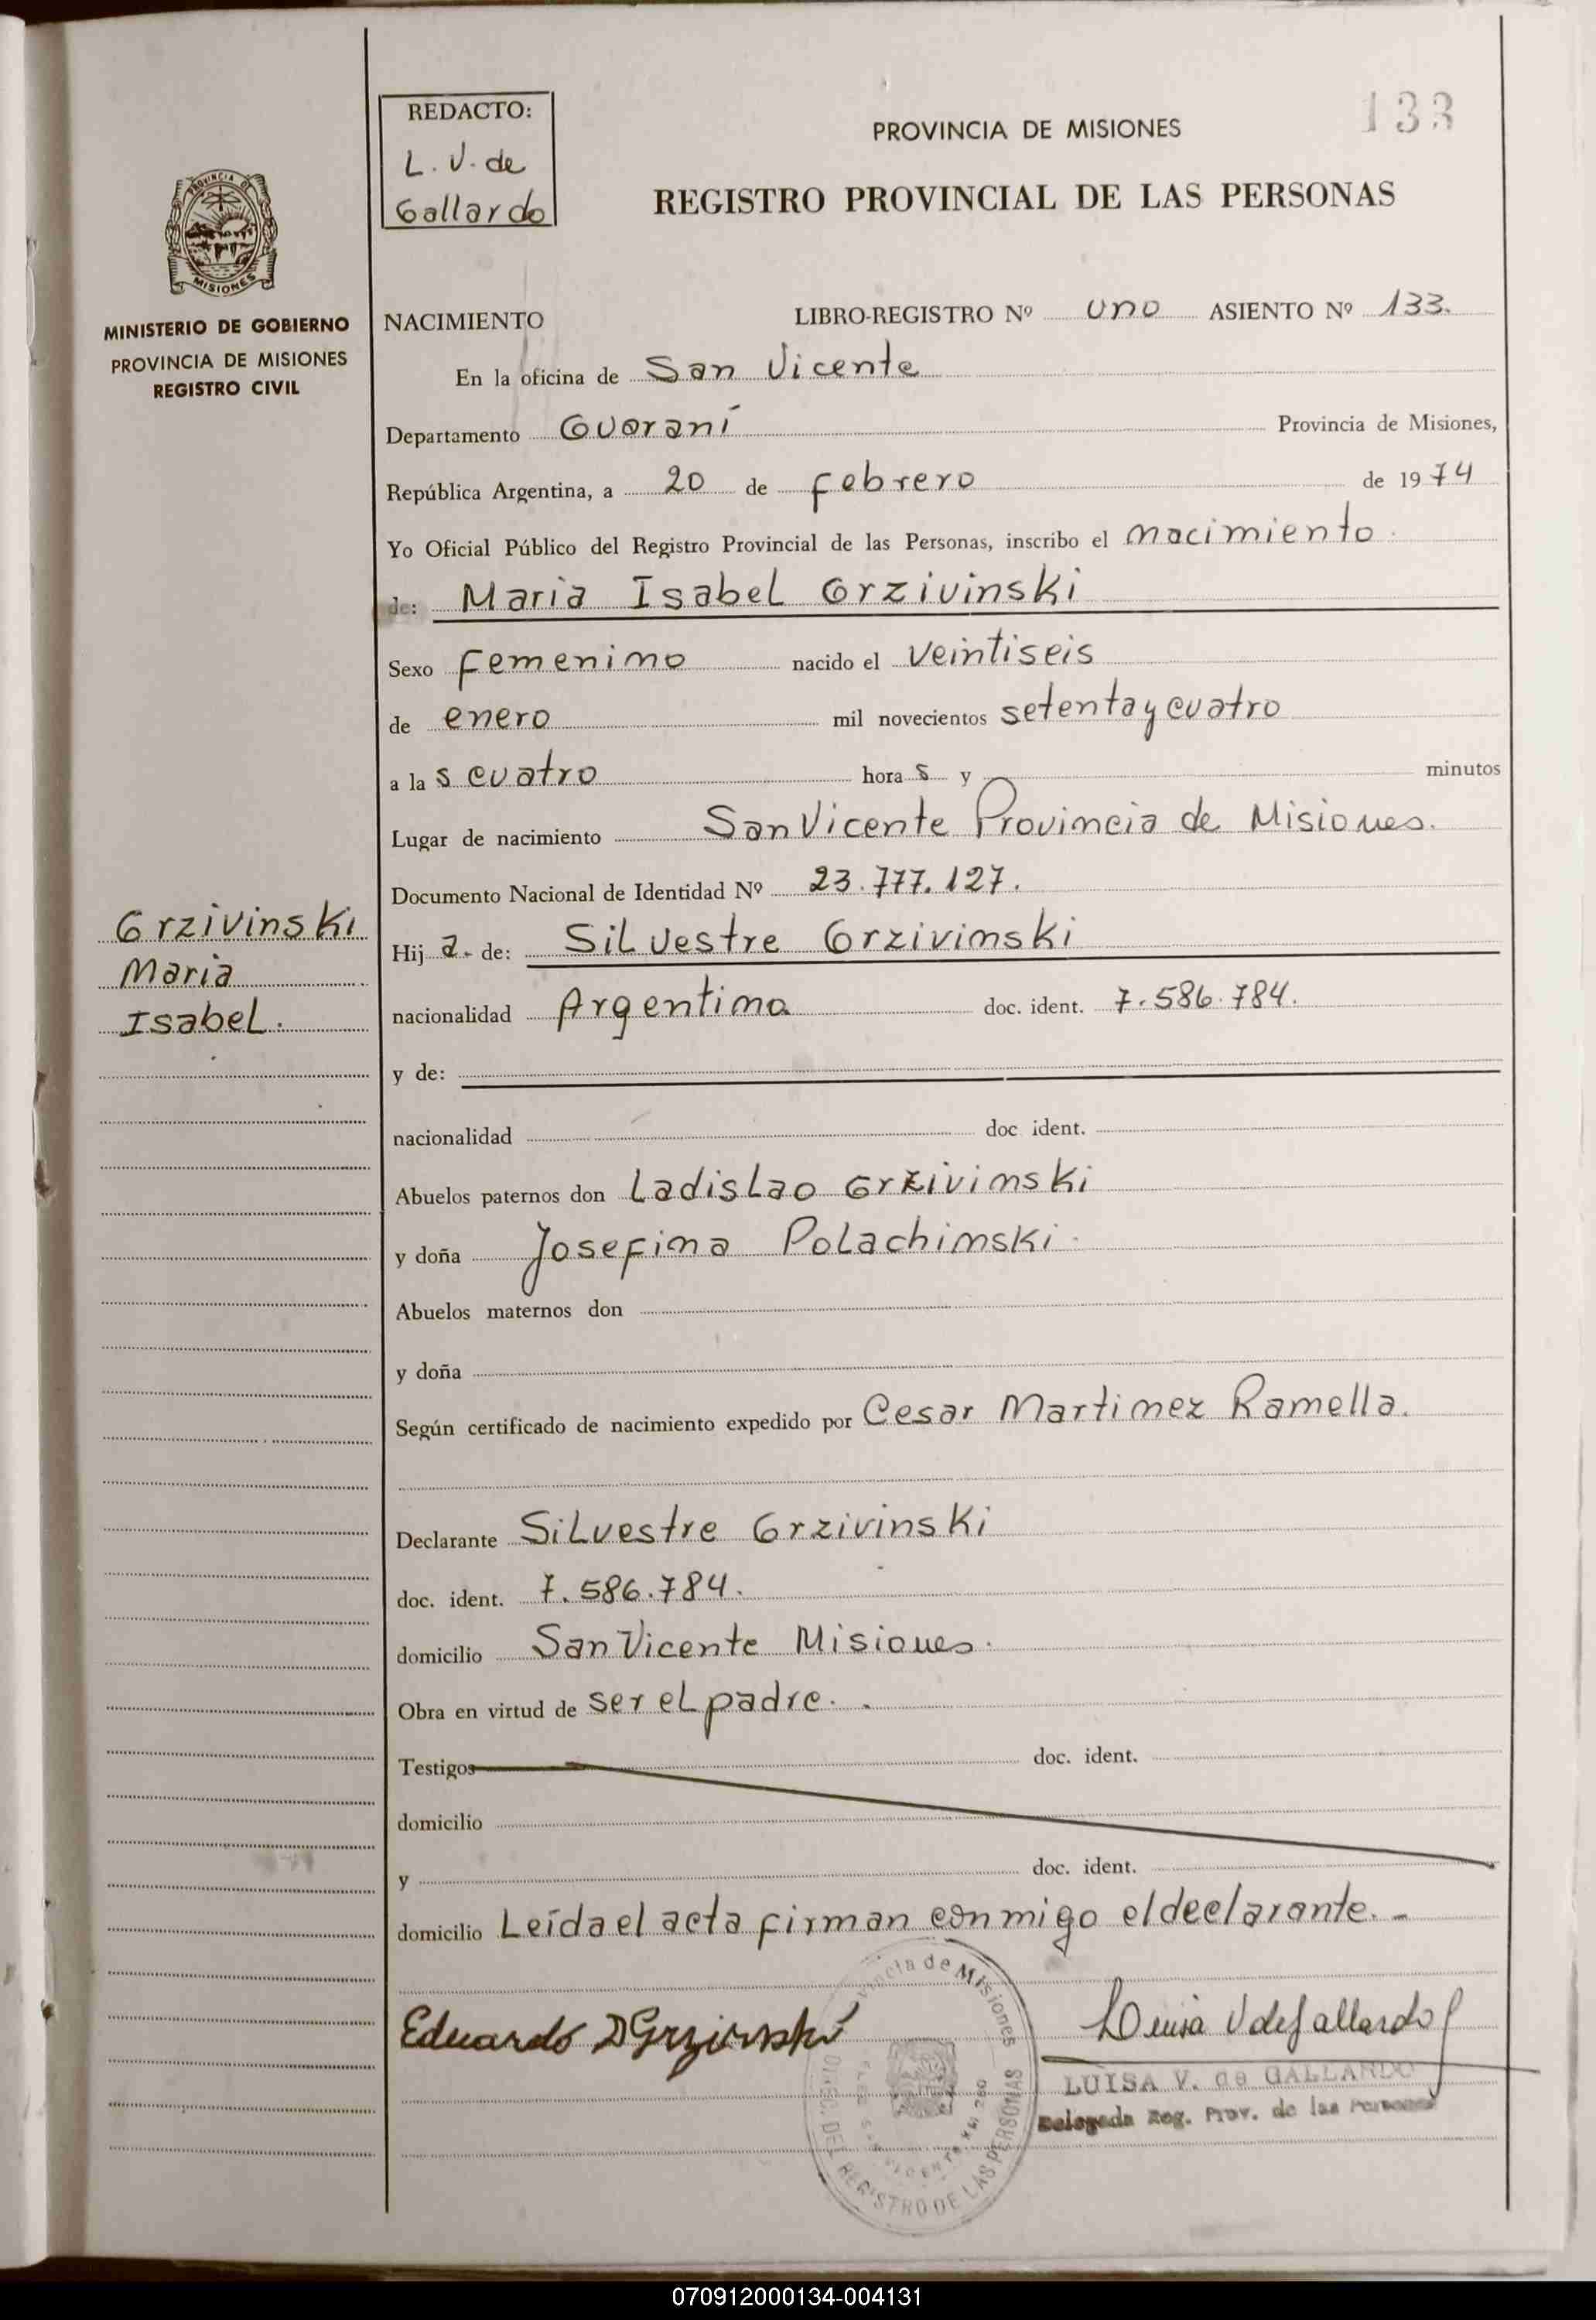 133
REDACTO:
L. V. de
Gallardo
PROVINCIA DE MISIONES
REGISTRO PROVINCIAL DE LAS PERSONAS
PROVINCIA DE
MISIONES
MINISTERIO DE GOBIERNO
PROVINCIA DE MISIONES
REGISTRO CIVIL
NACIMIENTO LIBRO-REGISTRO Nº uno ASIENTO Nº 133.
En la oficina de San Vicente
Departamento Guaraní Provincia de Misiones,
República Argentina, a 20 de febrero de 1974
Yo Oficial Público del Registro Provincial de las Personas, inscribo el nacimiento
de: Maria Isabel Grzivinski
Sexo femenino nacido el veintiseis
de enero mil novecientos setenta y cuatro
a las cuatro horas y minutos
Lugar de nacimiento San Vicente Provincia de Misiones.
Documento Nacional de Identidad Nº 23.777.127.
Grzivinski
Maria
Isabel.
Hija de: Silvestre Grzivinski
nacionalidad Argentina doc. ident. 7.586.784.
y de:
nacionalidad doc ident.
Abuelos paternos don Ladislao Grzivinski
y doña Josefina Polachinski
Abuelos maternos don
y doña
Según certificado de nacimiento expedido por Cesar Martinez Ramella.
Declarante Silvestre Grzivinski
doc. ident. 7.586.784.
domicilio San Vicente Misiones.
Obra en virtud de ser el padre.
Testigos doc. ident.
domicilio
y doc. ident.
domicilio Leída el acta firman conmigo el declarante.-
Eduardo D Grzivinski
Luisa V de Gallardo
LUISA V. de GALLARDO
Delegada Reg. Prov. de las Personas
vincia de Misiones
DEL REGISTRO DE LAS PERSONAS
070912000134-004131